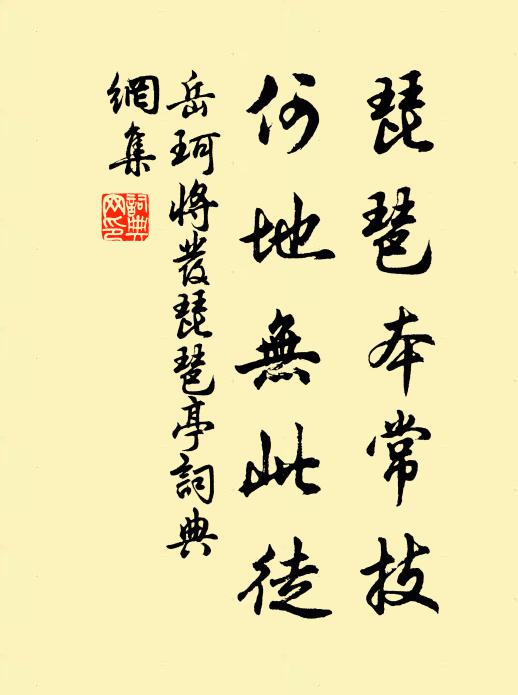 琵琶本常技
何地無此徒
岳珂將發琵琶亭詞典
網集
詞典
网印